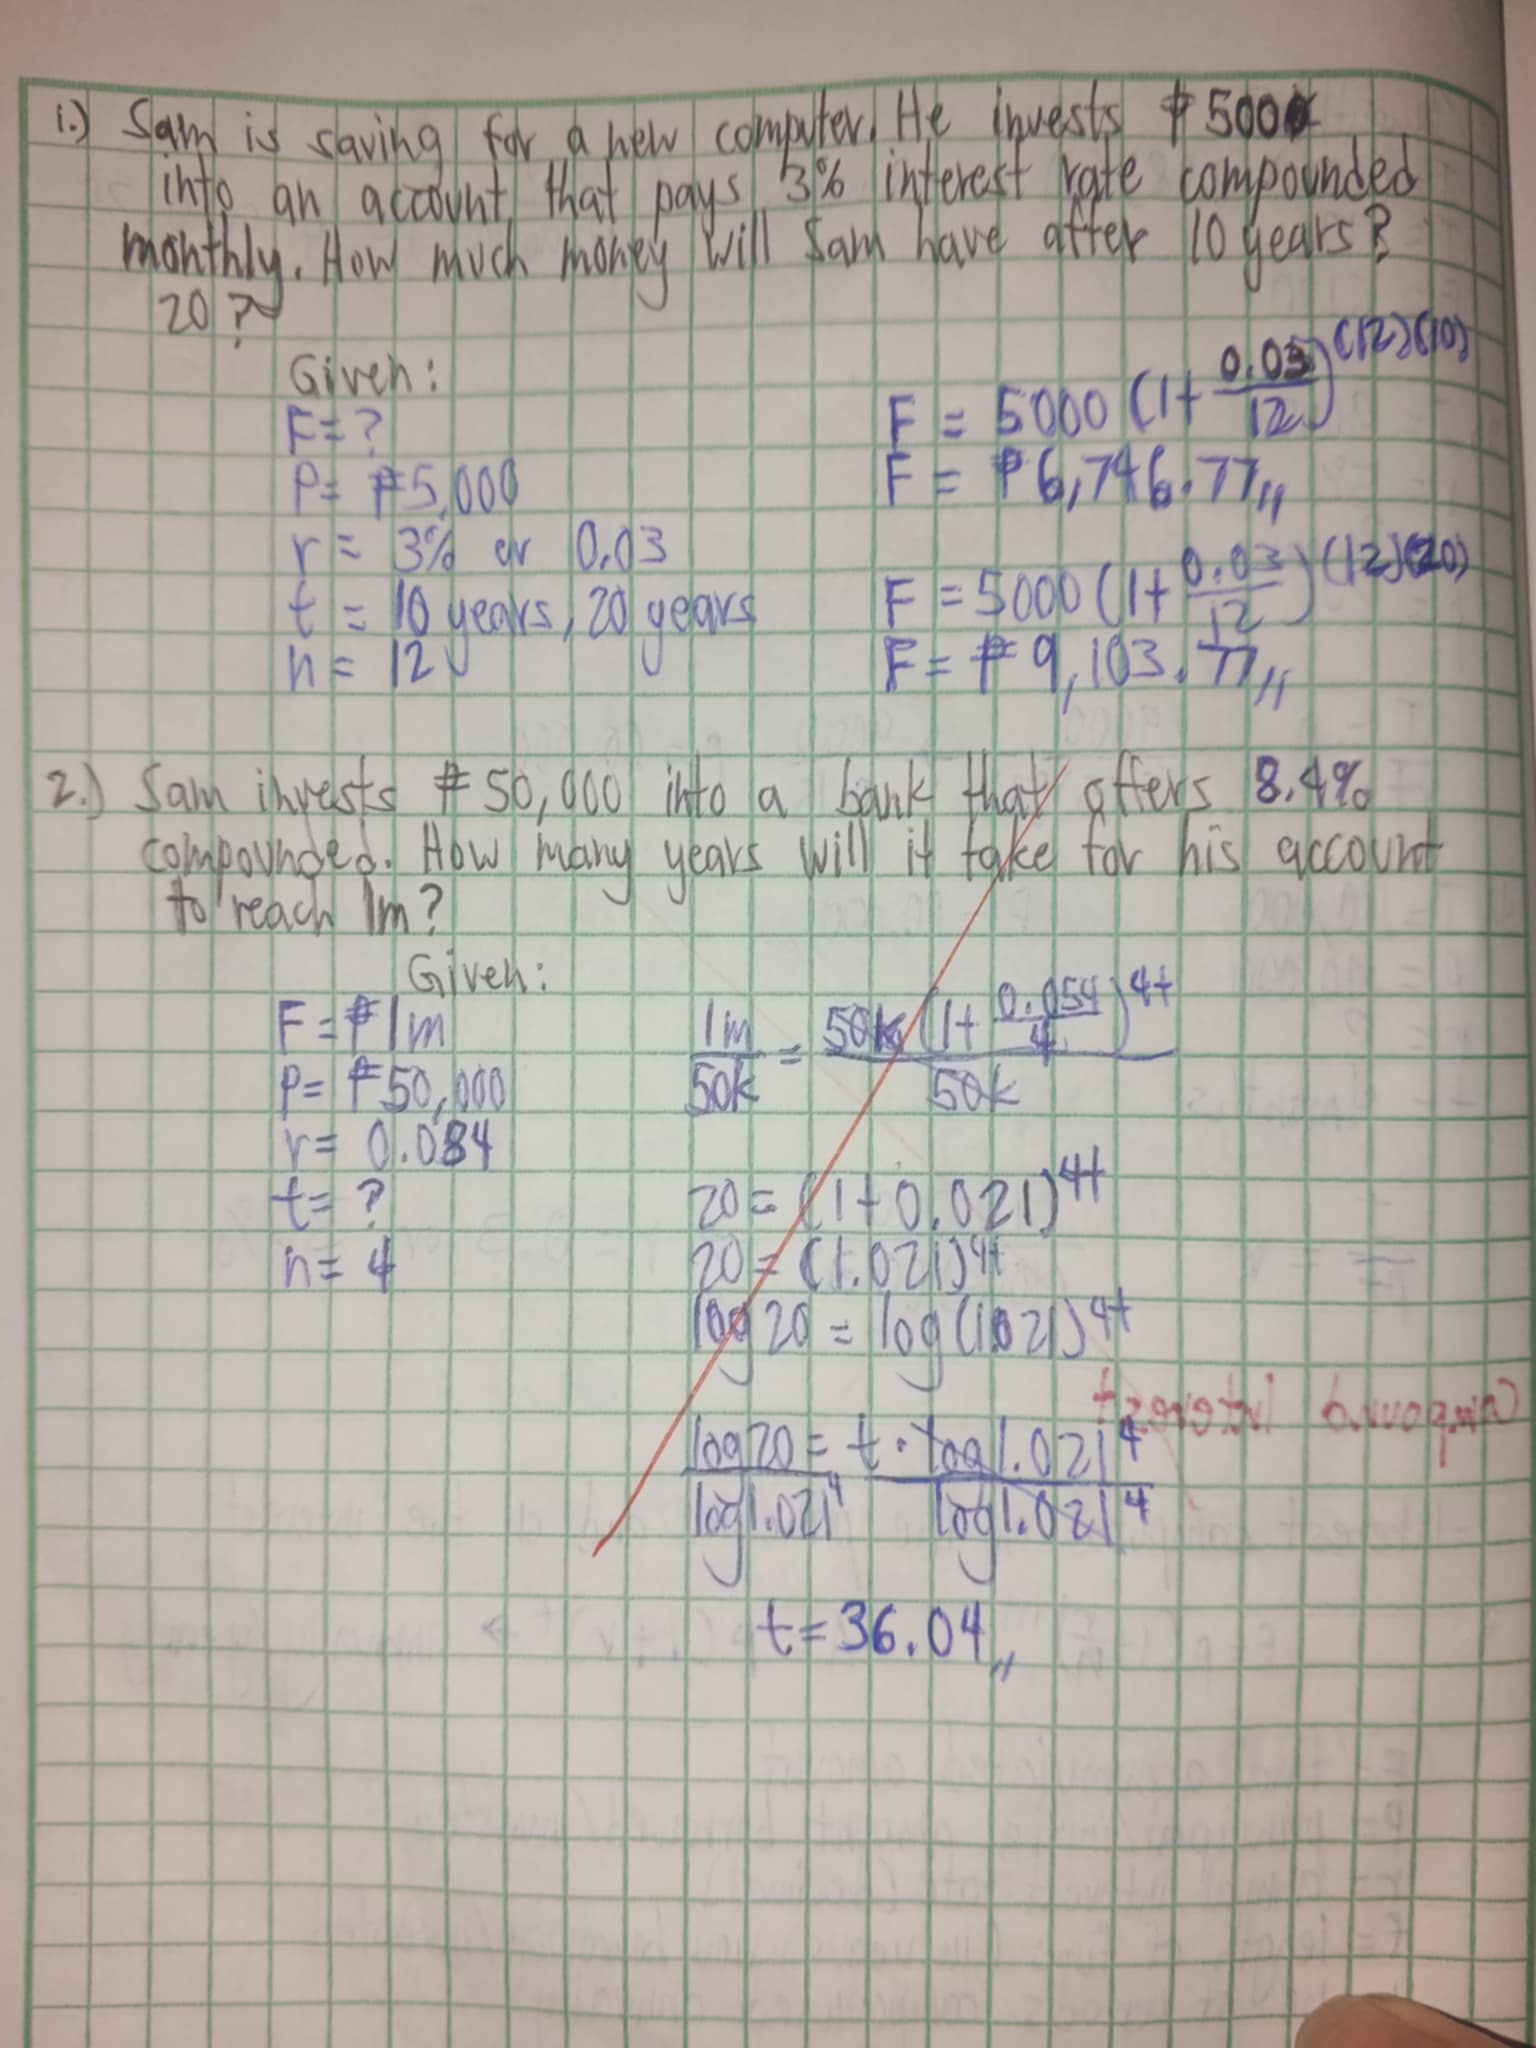 1.) Sam is saving for a new computer. He invests ₱5000
into an account that pays 3% interest rate compounded
monthly. How much money will Sam have after 10 years?
20?
Given:
F = ?
P = ₱5,000
r = 3% or 0.03
t = 10 years, 20 years
n = 12
F = 5000 (1+ 0.03/12)^(12)(10)
F = ₱6,746.77,,
F = 5000 (1+ 0.03/12)^(12)(20)
F = ₱9,103.77,,
2.) Sam invests ₱50,000 into a bank that offers 8.4%
compounded. How many years will it take for his account
to reach 1m?
Given:
F = ₱1m
P = ₱50,000
r = 0.084
t = ?
n = 4
1m/50k = 50k (1+ 0.054/4)^4t / 50k
20 = (1+0.021)^4t
20 = (1.021)^4t
log 20 = log (1.021)^4t
log 20 / log 1.021^4 = t · log 1.021^4 / log 1.021^4
t = 36.04,,
Compound Interest